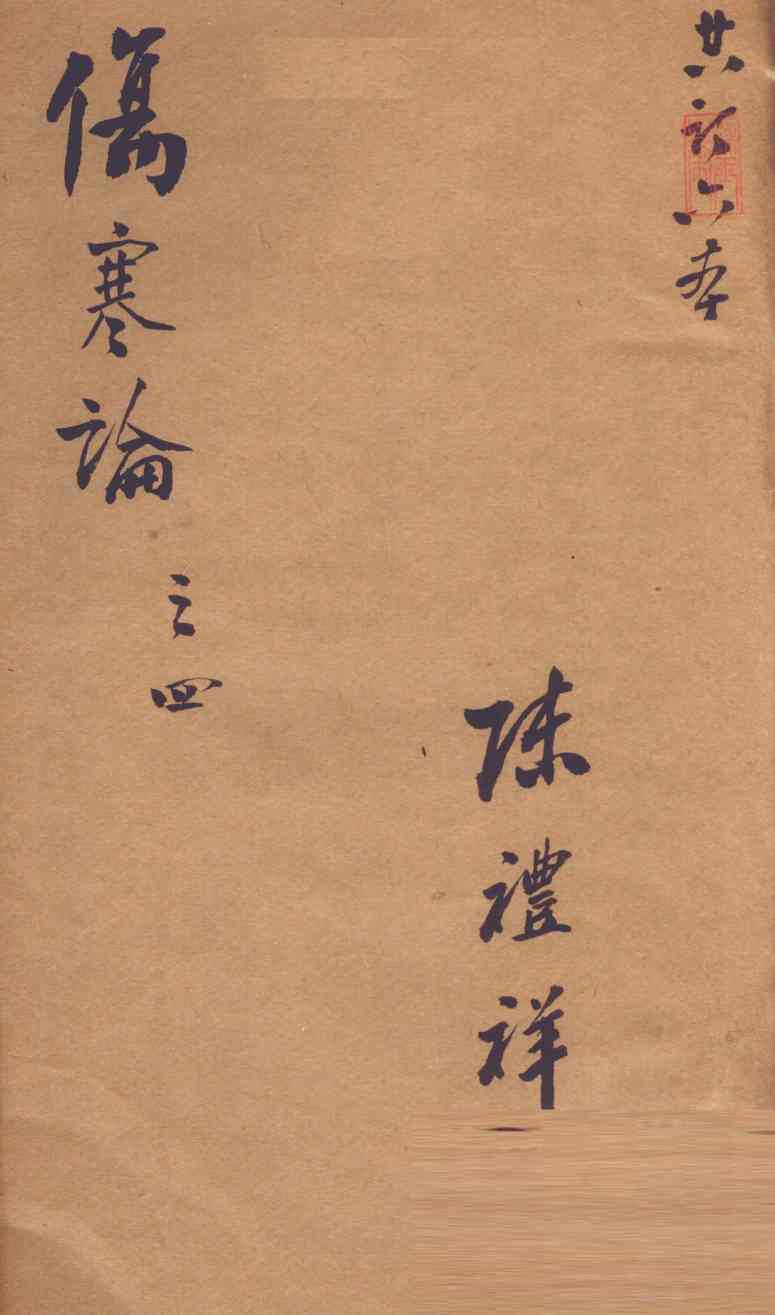 共訂六本
陳禮祥
傷寒論 之四